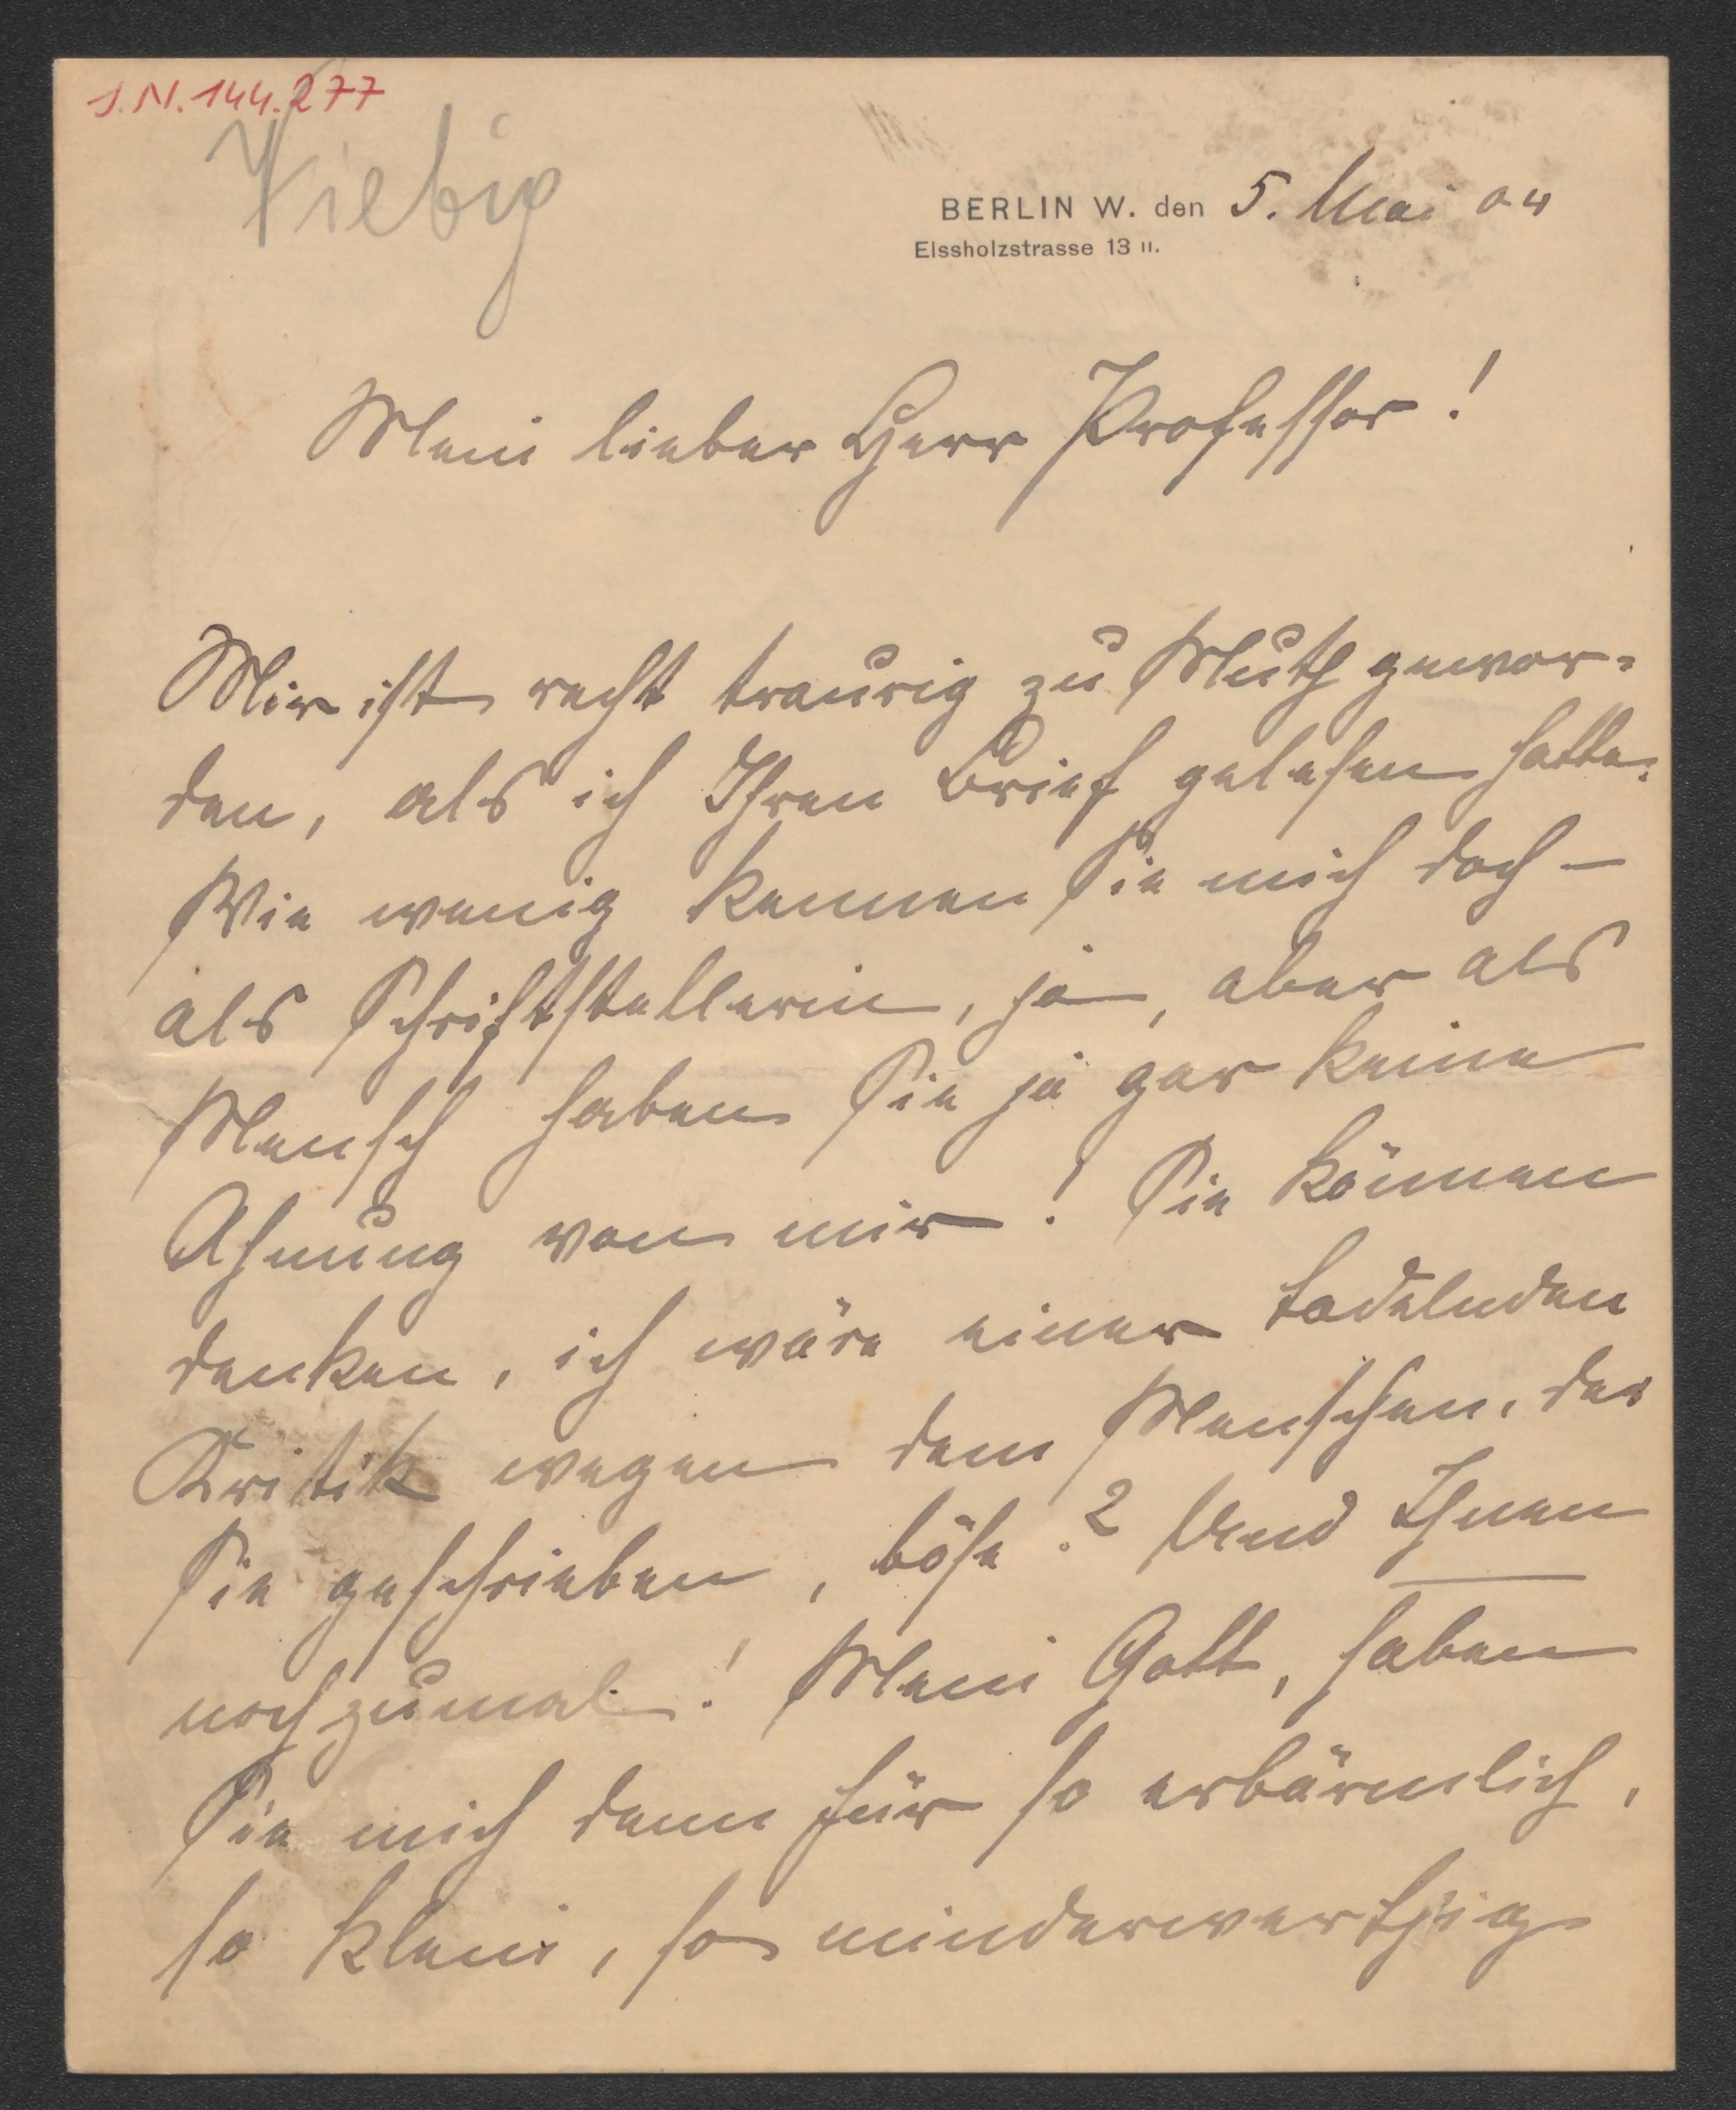 J.N. 144.277
Viebig
BERLIN W. den 5. Mai 04
Elssholzstrasse 13 II.
Mein lieber Herr Professor!
Mir ist recht traurig zu Muth gewor-
den, als ich Ihren Brief gelesen hatte.
Wie wenig kennen Sie mich doch –
als Schriftstellerin, ja, aber als
Mensch haben Sie ja gar keine
Ahnung von mir! Sie können
denken, ich wäre einer tadelnden
Kritik wegen dem Menschen, der
Sie geschrieben, böse? Und Ihnen
noch zumal! Mein Gott, haben
Sie mich denn für so erbärmlich,
so klein, so minderwerthig